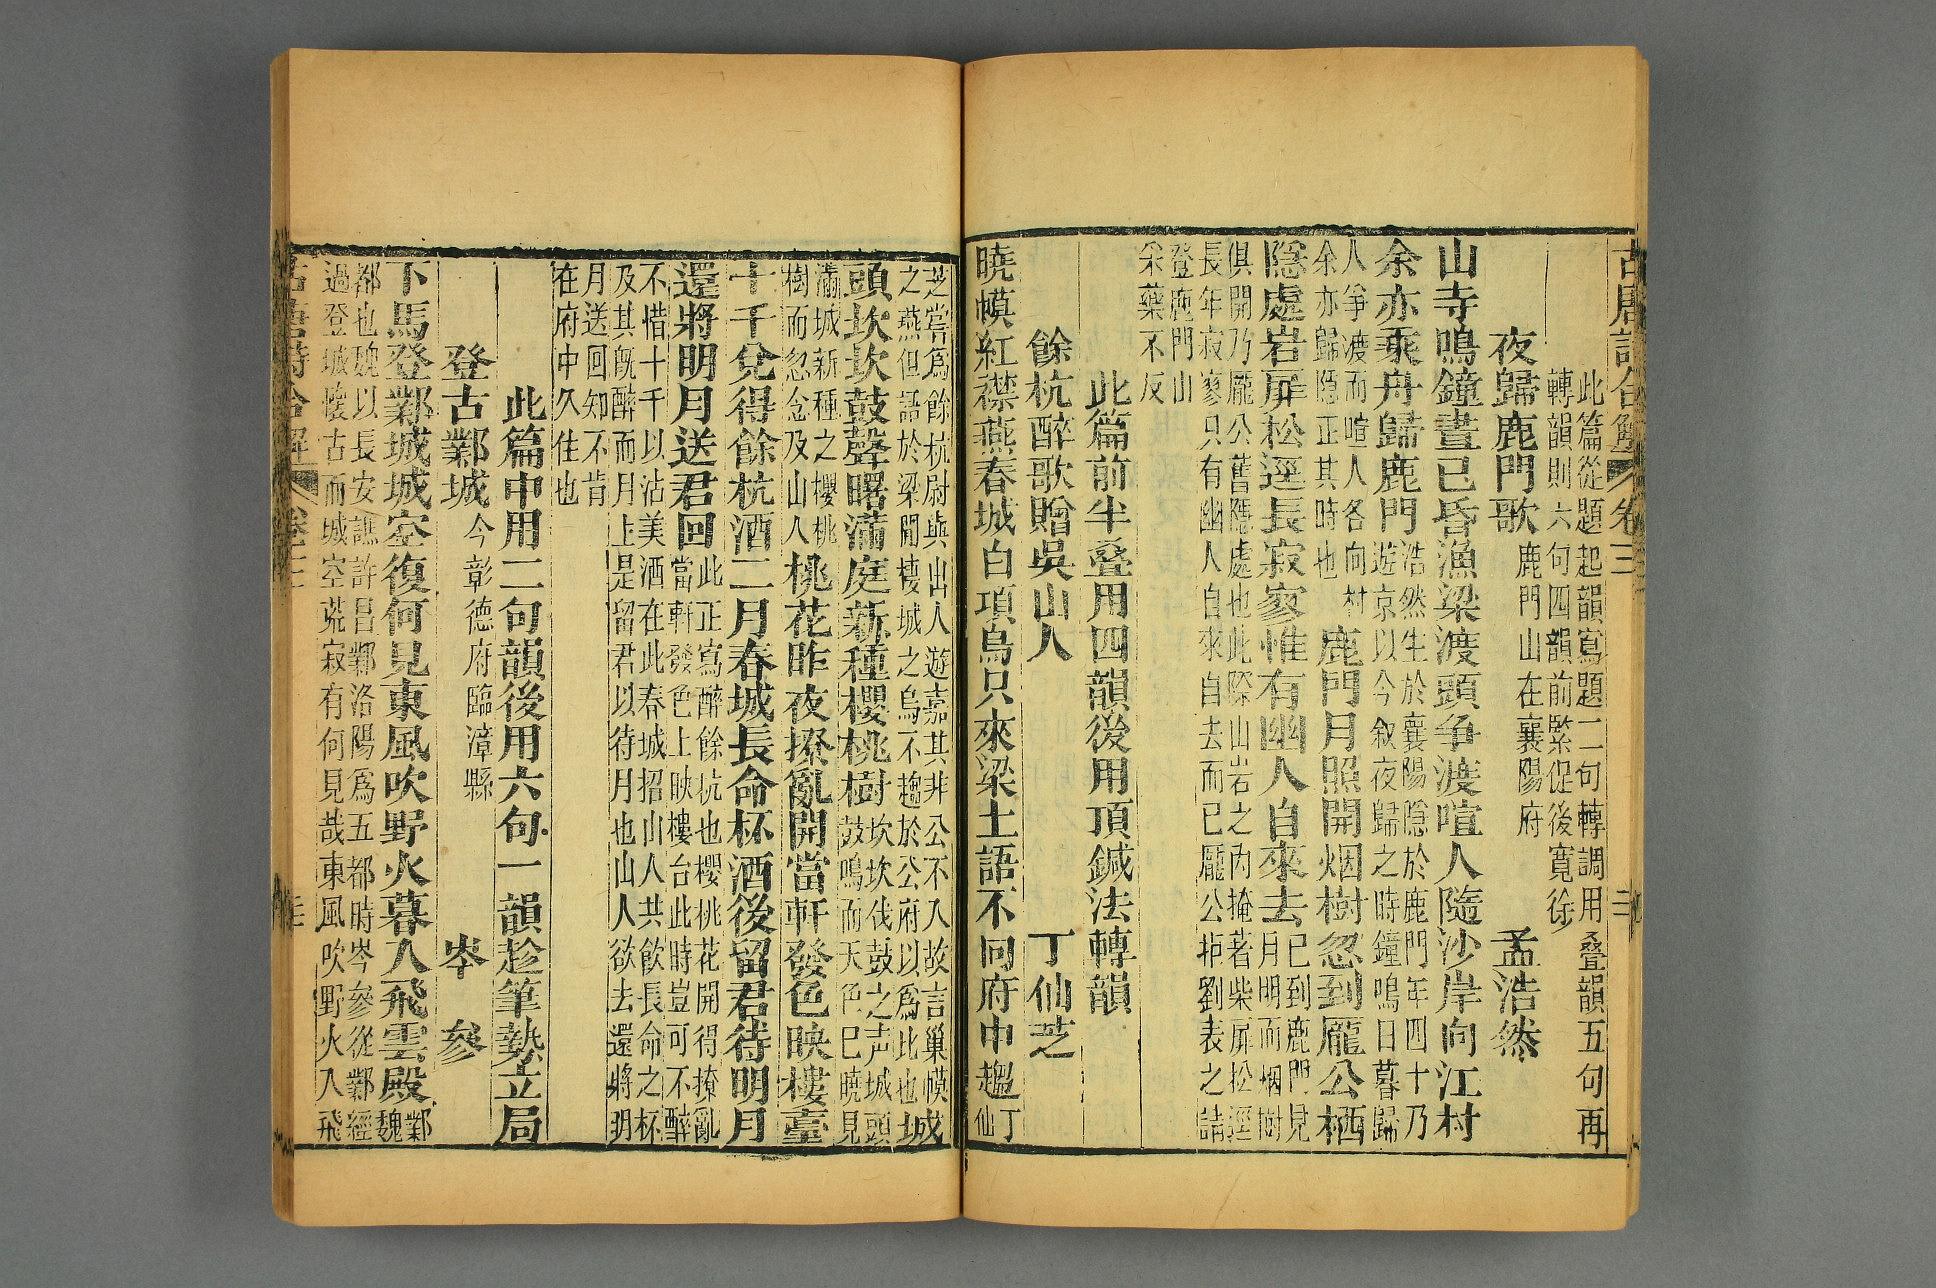 古唐詩合解 卷三
此篇從題起韻寫題二句轉調用叠韻五句再
轉韻則六句四韻前緊促後寬徐
夜歸鹿門歌 鹿門山在襄陽府 孟浩然
山寺鳴鐘晝已昏漁梁渡頭争渡喧人隨沙岸向江村
余亦乘舟歸鹿門 浩然生於襄陽隱於鹿門年四十乃
遊京以今叙夜歸之時鐘鳴日暮歸
人爭渡而喧人各向村
余亦歸隱正其時也
鹿門月照開烟樹忽到龐公栖
隱處岩扉松逕長寂寥惟有幽人自來去 已到鹿門見
月明而烟樹
俱開乃龐公舊隱處也此際山岩之內掩著柴扉松逕
長年寂寥只有幽人自來自去而已龐公拒劉表之請
登鹿門山
采藥不反
此篇前半叠用四韻後用頂鍼法轉韻
餘杭醉歌贈吳山人 丁仙芝
曉幙紅襟燕春城白項烏只來梁上語不向府中趨 丁
仙
芝嘗爲餘杭尉與山人遊嘉其非公不入故言巢幙
之燕但語於梁間棲城之烏不趨於公府以爲此也
城
頭坎坎鼓聲曙滿庭新種櫻桃樹 坎坎伐鼓之声城頭
鼓鳴而天色已曉見
滿城新種之櫻桃
樹而忽念及山人
桃花昨夜撩亂開當軒發色映樓臺
十千兌得餘杭酒二月春城長命杯酒後留君待明月
還將明月送君回 此正寫醉餘杭也櫻桃花開得撩亂
當軒發色上映樓台此時豈可不醉
不惜十千以沽美酒在此春城招山人共飲長命之杯
及其既醉而月上是留君以待月也山人欲去還將明
月送回知不肯
在府中久住也
此篇中用二句韻後用六句一韻趁筆勢立局
登古鄴城 今彰德府臨漳縣 岑參
下馬登鄴城城空復何見東風吹野火暮入飛雲殿 鄴
魏
都也魏以長安譙許昌鄴洛陽爲五都時岑參從鄴經
過登城懷古而城空荒寂有何見哉東風吹野火入飛
古唐詩合解 卷三